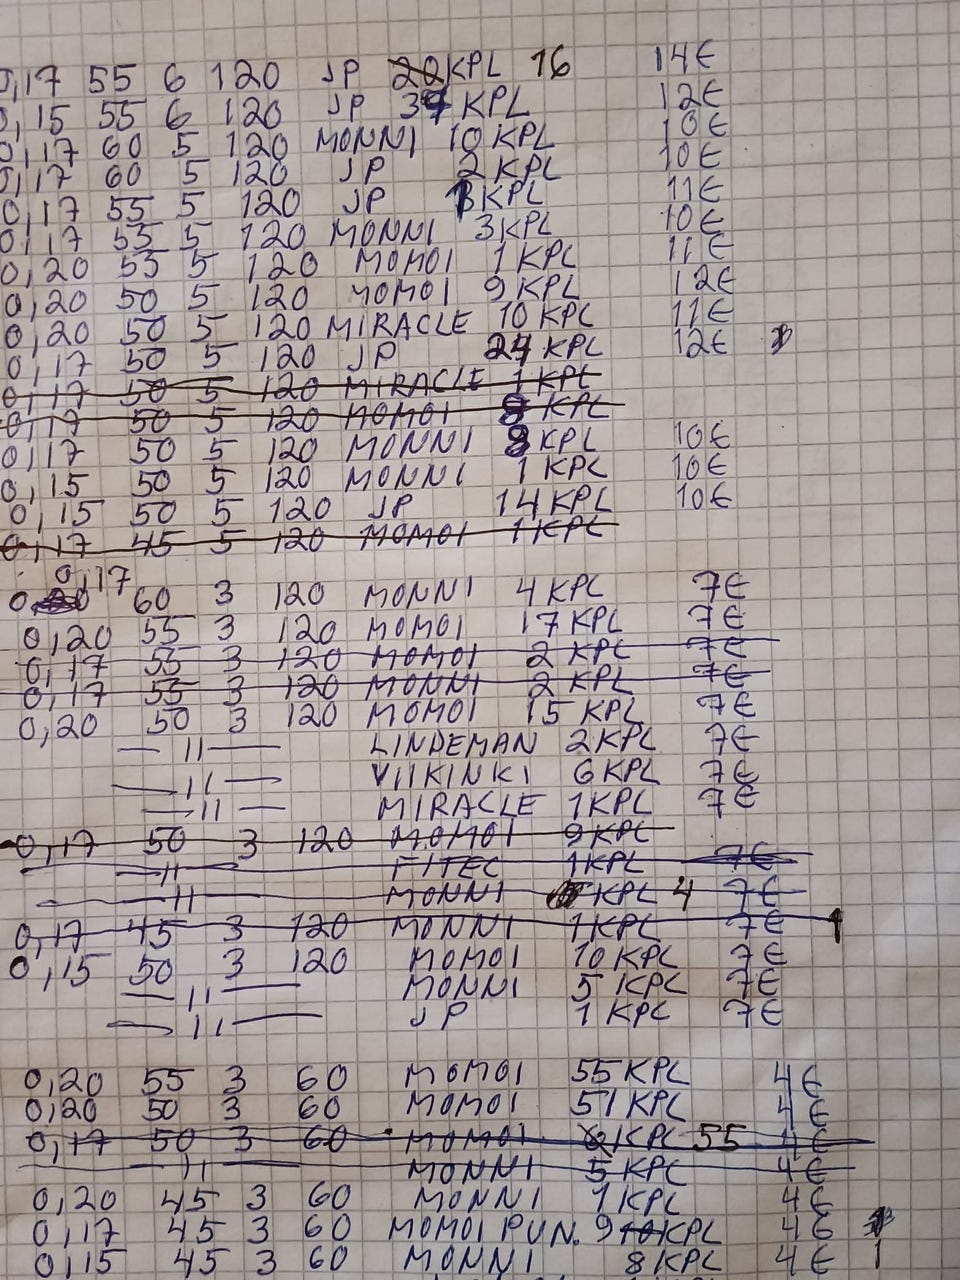 0,17 55 6 120 JP 20 KPL 16 14€
0,15 55 6 120 JP 37 KPL 12€
0,17 60 5 120 MONNI 10 KPL 10€
0,17 60 5 120 JP 2 KPL 10€
0,17 55 5 120 JP KPL 11€
0,17 55 5 120 MONNI 3 KPL 10€
0,20 55 5 120 MOMOI 1 KPL 11€
0,20 50 5 120 MOMOI 9 KPL 12€
0,20 50 5 120 MIRACLE 10 KPL 11€
0,17 50 5 120 JP 24 KPL 12€
0,17 50 5 120 MIRACLE 1 KPL
0,17 50 5 120 MOMOI 8 KPL
0,17 50 5 120 MONNI 8 KPL 10€
0,15 50 5 120 MONNI 1 KPL 10€
0,15 50 5 120 JP 14 KPL 10€
0,17 45 5 120 MOMOI 1 KPL
0,17
60 3 120 MONNI 4 KPL 7€
0,20 55 3 120 MOMOI 17 KPL 7€
0,17 55 3 120 MOMOI 2 KPL 7€
0,17 55 3 120 MONNI 2 KPL 7€
0,20 50 3 120 MOMOI 15 KPL 7€
— 11 — LINDEMAN 2 KPL 7€
— 11 — VIIKINKI 6 KPL 7€
— 11 — MIRACLE 1 KPL 7€
0,17 50 3 120 MOMOI 9 KPL
— 11 — FITEC 1 KPL 7€
— 11 — MONNI KPL 4 7€
0,17 45 3 120 MONNI 1 KPL 7€
0,15 50 3 120 MOMOI 10 KPL 7€
— 11 — MONNI 5 KPL 7€
— 11 — JP 1 KPL 7€
0,20 55 3 60 MOMOI 55 KPL 4€
0,20 50 3 60 MOMOI 51 KPL 4€
0,17 50 3 60 MOMOI KPL 55 4€
— 11 — MONNI 5 KPL 4€
0,20 45 3 60 MONNI 1 KPL 4€
0,17 45 3 60 MOMOI PUN. 9 10 KPL 4€
0,15 45 3 60 MONNI 8 KPL 4€ 1